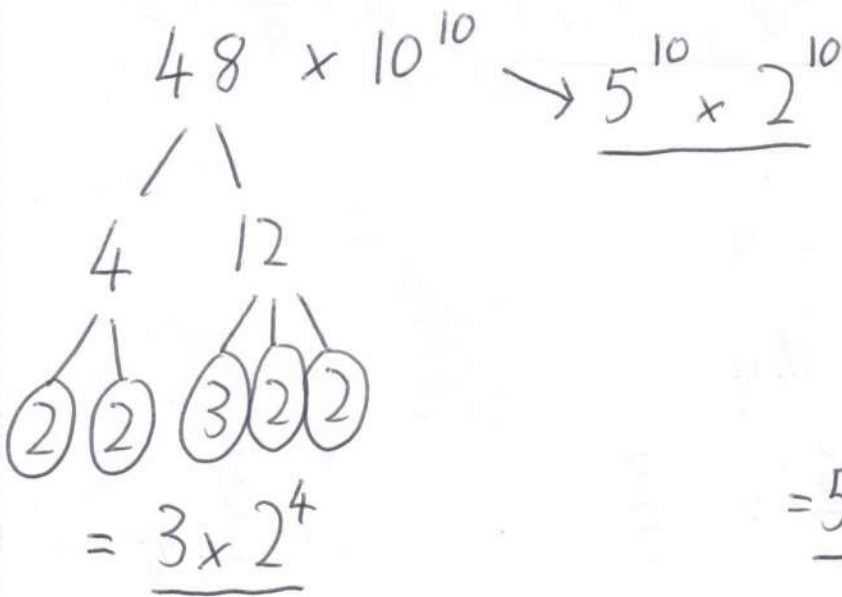 48 × 10¹⁰ → 5¹⁰ × 2¹⁰
4 12
2 2 3 2 2
= 3 × 2⁴
= 5